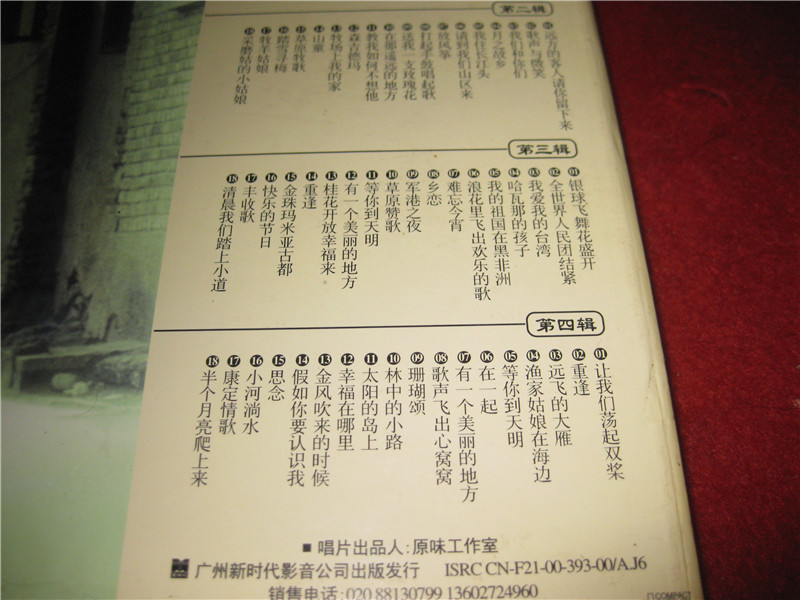 第二辑
01 远方的客人请你留下来
02 歌声与微笑
03 我们和你们
04 月之故乡
05 我住长江头
06 请到我们山区来
07 放风筝
08 打起手鼓唱起歌
09 送我一支玫瑰花
10 在那遥远的地方
11 教我如何不想他
12 森吉德玛
13 牧场上我的家
14 山童
15 草原牧歌
16 踏雪寻梅
17 牧羊姑娘
18 采磨姑的小姑娘
第三辑
01 银球飞舞花盛开
02 全世界人民团结紧
03 我爱我的台湾
04 哈瓦那的孩子
05 我的祖国在黑非洲
06 浪花里飞出欢乐的歌
07 难忘今宵
08 乡恋
09 军港之夜
10 草原赞歌
11 等你到天明
12 有一个美丽的地方
13 桂花开放幸福来
14 重逢
15 金珠玛米亚古都
16 快乐的节日
17 丰收歌
18 清晨我们踏上小道
第四辑
01 让我们荡起双桨
02 重逢
03 远飞的大雁
04 渔家姑娘在海边
05 等你到天明
06 在一起
07 有一个美丽的地方
08 歌声飞出心窝窝
09 珊瑚颂
10 林中的小路
11 太阳的岛上
12 幸福在哪里
13 金风吹来的时候
14 假如你要认识我
15 思念
16 小河淌水
17 康定情歌
18 半个月亮爬上来
■ 唱片出品人:原味工作室
广州新时代影音公司出版发行 ISRC CN-F21-00-393-00/A.J6
销售电话:020 88130799 13602724960